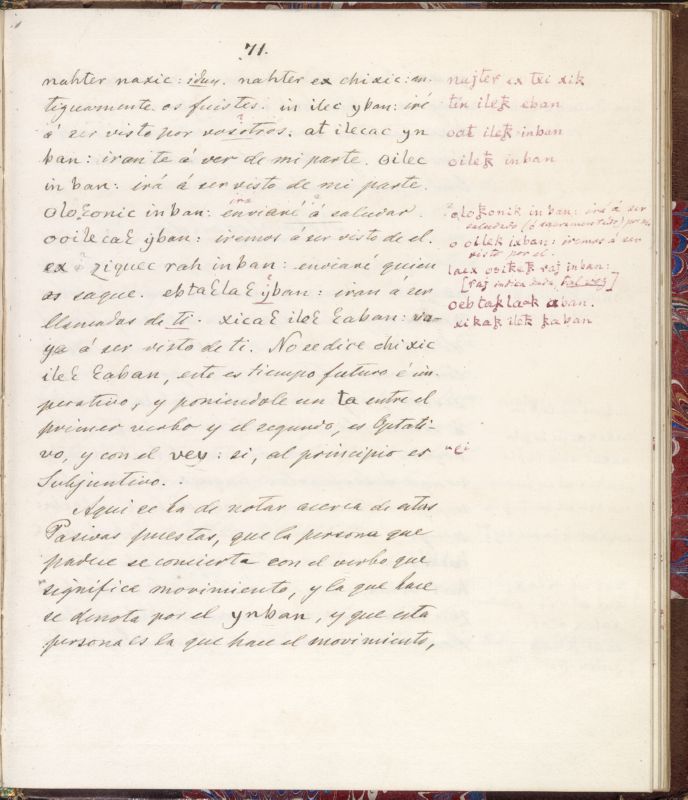 71.
nahter naxic: idem. nahter ex chixic: an-
tiguamente os fuistes. in ilec yban: iré
á ser visto por vosotros. at ilecac yn
ban: iran te á ver de mi parte. oilec
in ban: irá á ser visto de mi parte.
enviaré á saludar.
ooilecaꜪ yban: iremos á ser visto de el.
ex ziquec rah inban: enviaré quien
os saque. ebtaꜪlaꜪ yban: iran a ser
llamados de ti. xicaꜪ iloꜪ Ꜫaban: va-
ya á ser visto de ti. No se dice chixic
ileꜪ Ꜫaban, este es tiempo futuro é im-
perativo, y poniendole un ta entre el
primer verbo y el segundo, es Optati-
vo, y con el vey: si, al principio es
Subjuntivo.
Aqui se ha de notar acerca de estas
Pasivas puestas, que la persona que
padece se concierta con el verbo que
significa movimiento, y la que hace
se denota por el ynban, y que esta
persona es la que hace el movimiento,
najter ex txi xik
tin ileꝁ eban
oat ileꝁ inban
oileꝁ inban
oloꝁonik inban: irá á ser
saludado
o oileꝁ ixban: iremos á ser
visto por el.
laex
[raj indica
oebtaꝁlaoꝁ aban.
xikaꝁ ileꝁ ꝁaban